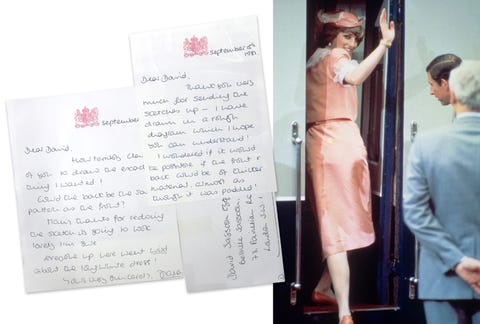 september
Dear David,
How terribly
of you to draw the exact
thing I wanted!
Could the back be the same
pattern as the front?
Many thanks for redoing
the sketch. Its going to look
lovely
Everyone up here went
about the
white dress!
Yours very sincerely,
september
1981.
Dear David,
Thank you very
much for sending the
sketches up - I have
drawn in a rough
diagram which I hope
you can understand!
I wondered if it would
be possible if the front &
back could be of thicker
material. Almost as
though it was padded!
David Sassoon Esq
Bellville Sassoon,
73 Pavilion Rd
London SW1